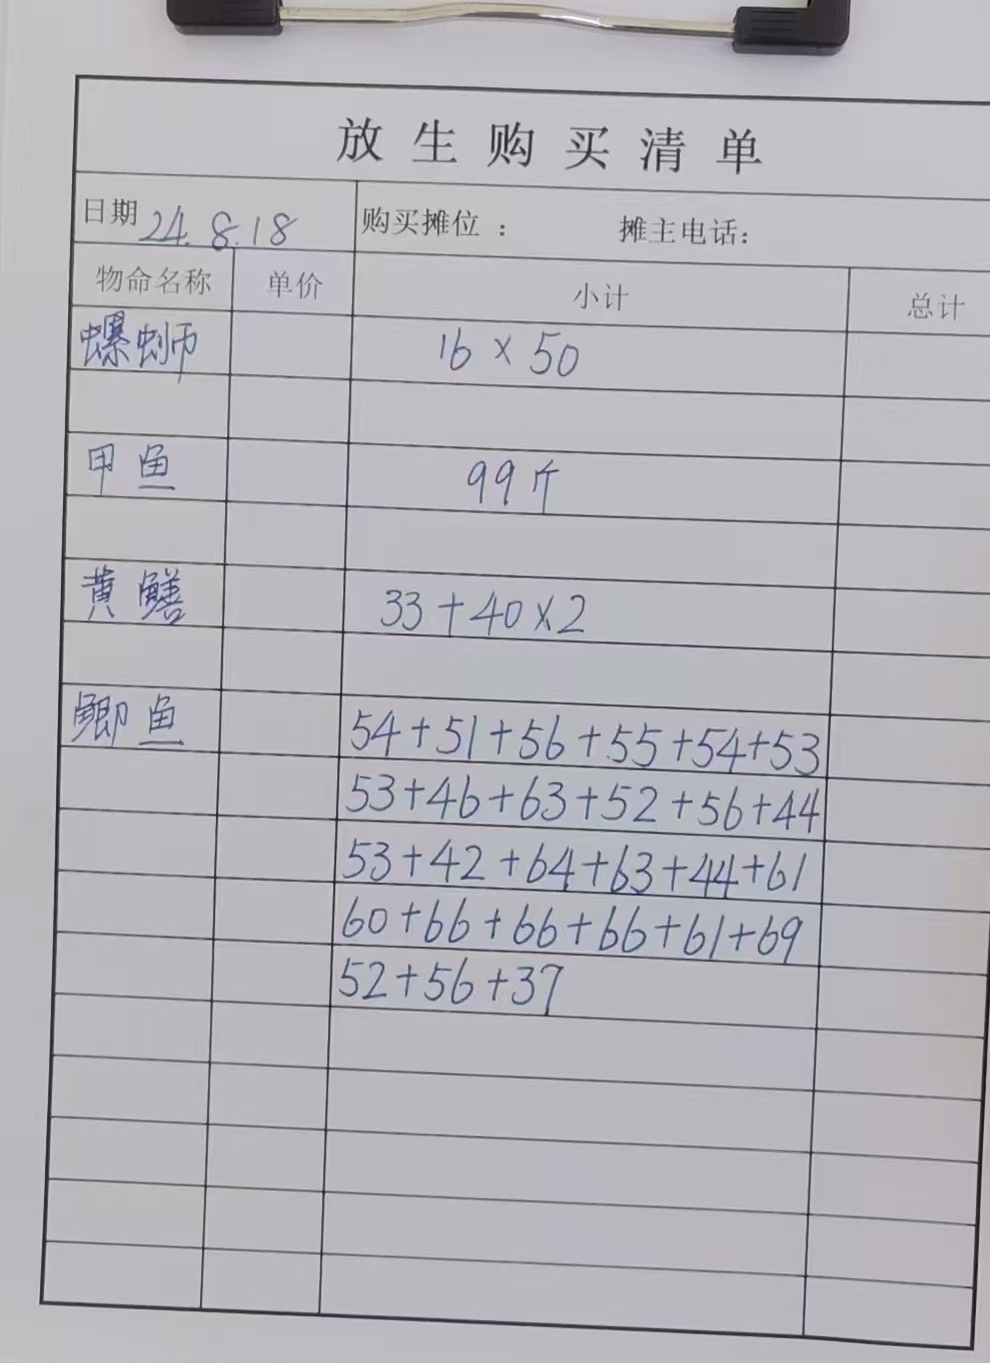 放生购买清单
日期 24.8.18 购买摊位： 摊主电话：
物命名称 单价 小计 总计
螺蛳 16×50
甲鱼 99斤
黄鳝 33+40×2
鲫鱼 54+51+56+55+54+53
53+46+63+52+56+44
53+42+64+63+44+61
60+66+66+66+61+69
52+56+37